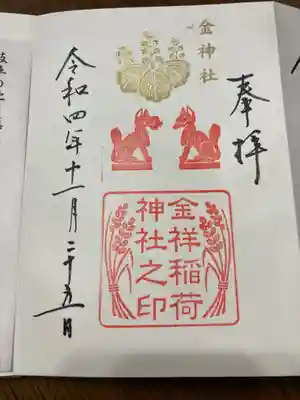 奉拝
金神社
金祥稲荷
神社之印
令和四年十一月二十五日